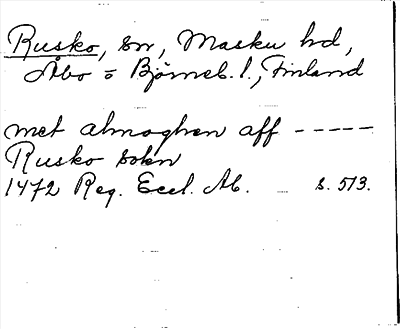 Rusko, sn, Masku hd,
Åbo o Björneb. l., Finland
met almoghen aff -----
Rusko sokn
1472 Reg. Eccl. Ab. s. 513.